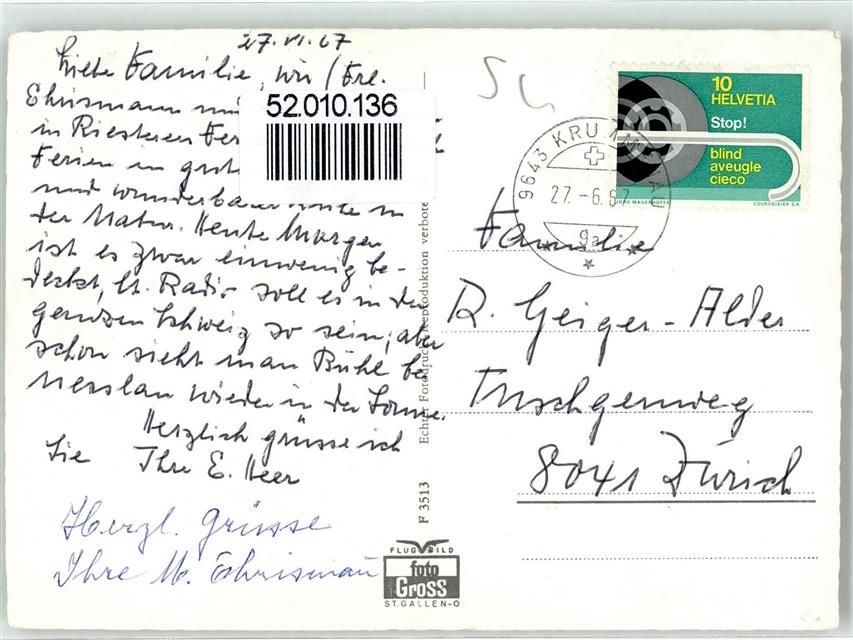 27.VI.67
Liebe Familie, wir (Frl.
Ehrismann
in Riesteren
Ferien in
und wunderbarer in
der Natur. Heute Morgen
ist es zwar einwenig be-
deckt, lt. Radio soll es in der
ganzen Schweiz so sein, aber
schon sieht man Bühl bei
Nesslau wieder in der Sonne.
Herzlich grüsse ich
Sie Ihre E. Heer
Herzl. Grüsse
Ihre M. Ehrismann
52.010.136
Echter Fotodruck Reproduktion verboten
F 3513
FLUGBILD
foto
Gross
ST. GALLEN-O
10
HELVETIA
Stop!
blind
aveugle
cieco
JÖRG MAUERHOFER
COURVOISIER S.A.
9643 KRUMMENAU
27.-6.67
9a
Familie
R. Geiger-Alder
Tuschgenweg
8041 Zürich